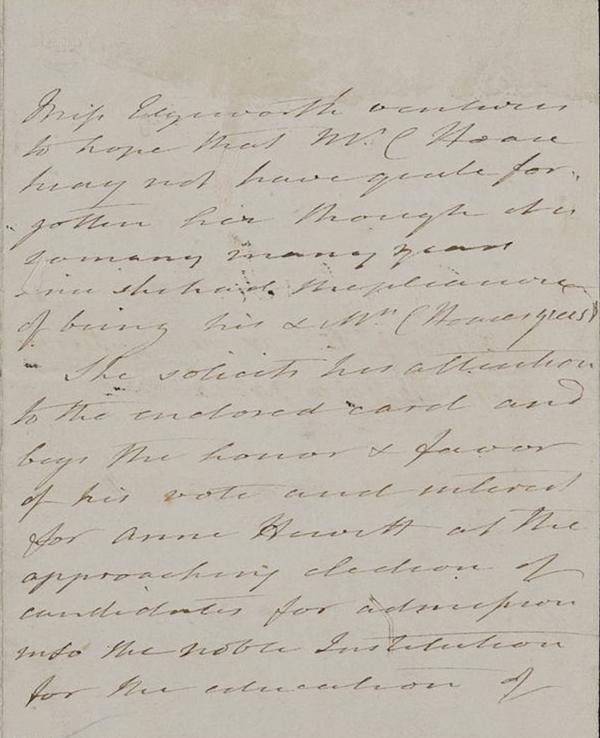 Miss Edgeworth ventures
to hope that Mr. C Hoare
may not have quite for-
gotten her though it is
so many many years
since she had the pleasure
of being his & Mrs C Hoares guest
She solicits his attention
to the enclosed card and
begs the honor & favor
of his vote and interest
for Anne Hewitt at the
approaching election of
candidates for admission
into the noble Institution
for the education of